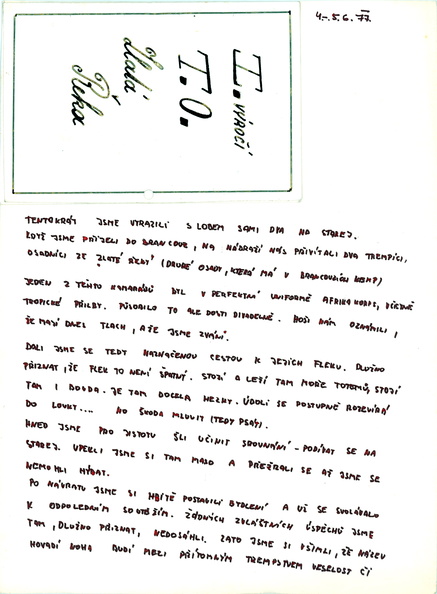 4.-5.6.77.
I. VÝROČÍ
T.O.
Zlatá
Řeka
TENTOKRÁT JSME VYRAZILI S LOBEM SAMI DVA NA STAREJ.
KDYŽ JSME PŘIJELI DO BRANCOUZ, NA NÁDRAŽÍ NÁS PŘIVÍTALI DVA TREMPÍCI,
OSADNÍCI ZE ZLATÉ ŘEKY (DRUHÉ OSADY, KTERÁ MÁ V BRANCOUZÍCH KEMP)
JEDEN Z TĚHTO KAMARÁDŮ BYL V PERFEKTNÍ UNIFORMĚ AFRIKA KORPS, VČETNĚ
TROPICKÉ PŘILBY. PŮSOBILO TO ALE DOSTI DIVADELNĚ. HOŠI NÁM OZNÁMILI,
ŽE MAJÍ DNES TLACH, A ŽE JSME ZVÁNI.
DALI JSME SE TEDY NAZNAČENOU CESTOU K JEJICH FLEKU. DLUŽNO
PŘIZNAT, ŽE FLEK TO NENÍ ŠPATNÝ. STOJÍ A LEŽÍ TAM MOŘE TOTEMŮ, STOJÍ
TAM I BOUDA. JE TAM DOCELA HEZKY. ÚDOLÍ SE POSTUPNĚ ROZEVÍRÁ
DO LOUKY.... NO ŠKODA MLUVIT (TEDY PSÁT).
HNED JSME PRO JISTOTU ŠLI UČINIT SROVNÁNÍ - PODÍVAT SE NA
STAREJ. UPEKLI JSME SI TAM MASO A PŘEŽRALI SE AŽ JSME SE
NEMOHLI HÝBAT.
PO NÁVRATU JSME SI HBITĚ POSTAVILI BYDLENÍ A UŽ SE SVOLÁVALO
K ODPOLEDNÍM SOUTĚŽÍM. ŽÁDNÝCH ZVLÁŠTNÍCH ÚSPĚCHŮ JSME
TAM, DLUŽNO PŘIZNAT, NEDOSÁHLI. ZATO JSME SI VŠIMLI, ŽE NÁZEV
HOVADÍ NOHA BUDÍ MEZI PŘÍTOMNÝM TREMPSTVEM VESELOST ČI